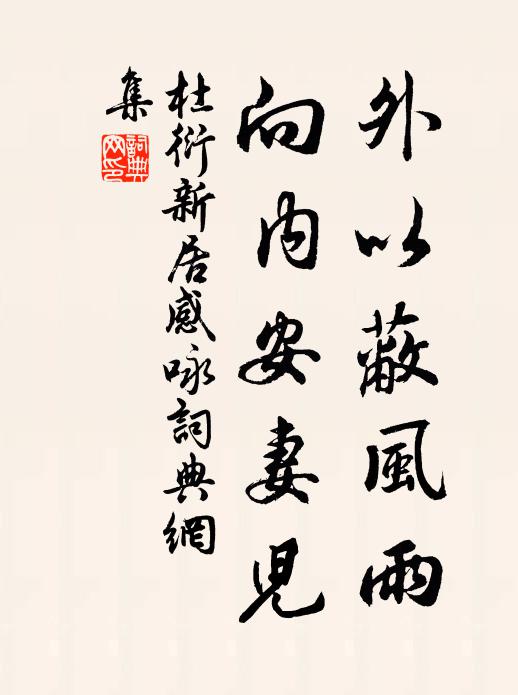 外以蔽風雨
向内安妻児
杜衍新居感咏詞典網
集
詞典網印